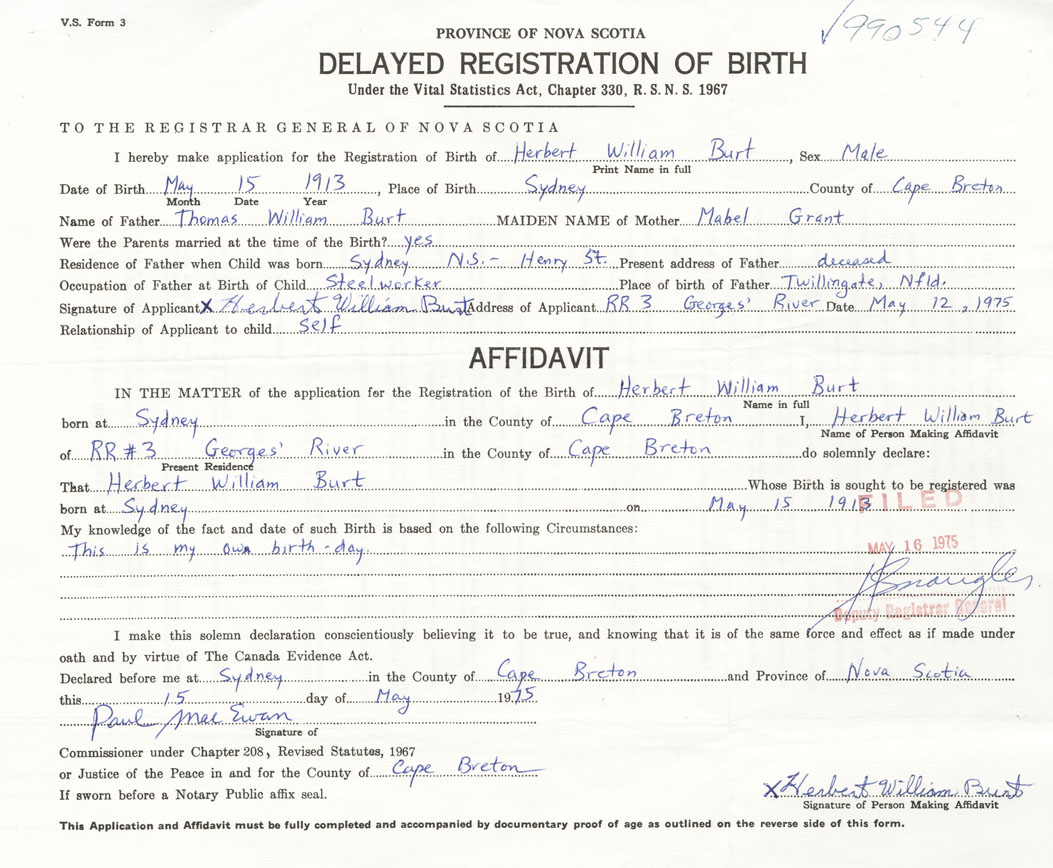 V.S. Form 3
√990544
PROVINCE OF NOVA SCOTIA
DELAYED REGISTRATION OF BIRTH
Under the Vital Statistics Act, Chapter 330, R.S.N.S. 1967
TO THE REGISTRAR GENERAL OF NOVA SCOTIA
I hereby make application for the Registration of Birth of Herbert William Burt, Sex Male
Print Name in full
Date of Birth May 15 1913, Place of Birth Sydney County of Cape Breton
Month Date Year
Name of Father Thomas William Burt MAIDEN NAME of Mother Mabel Grant
Were the Parents married at the time of the Birth? yes
Residence of Father when Child was born Sydney N.S. - Henry St. Present address of Father deceased
Occupation of Father at Birth of Child Steelworker Place of birth of Father Twillingate, Nfld.
Signature of Applicant X Herbert William Burt Address of Applicant RR 3 Georges' River Date May 12, 1975
Relationship of Applicant to child self
AFFIDAVIT
IN THE MATTER of the application for the Registration of the Birth of Herbert William Burt
Name in full
born at Sydney in the County of Cape Breton I, Herbert William Burt
Name of Person Making Affidavit
of RR #3 Georges' River in the County of Cape Breton do solemnly declare:
Present Residence
That Herbert William Burt Whose Birth is sought to be registered was
born at Sydney on May 15 1913
FILED
My knowledge of the fact and date of such Birth is based on the following Circumstances:
This is my own birth-day.
MAY 16 1975
Deputy Registrar General
I make this solemn declaration conscientiously believing it to be true, and knowing that it is of the same force and effect as if made under
oath and by virtue of The Canada Evidence Act.
Declared before me at Sydney in the County of Cape Breton and Province of Nova Scotia
this 15 day of May 1975
Paul MacEwan
Signature of
Commissioner under Chapter 208, Revised Statutes, 1967
or Justice of the Peace in and for the County of Cape Breton
If sworn before a Notary Public affix seal.
X Herbert William Burt
Signature of Person Making Affidavit
This Application and Affidavit must be fully completed and accompanied by documentary proof of age as outlined on the reverse side of this form.